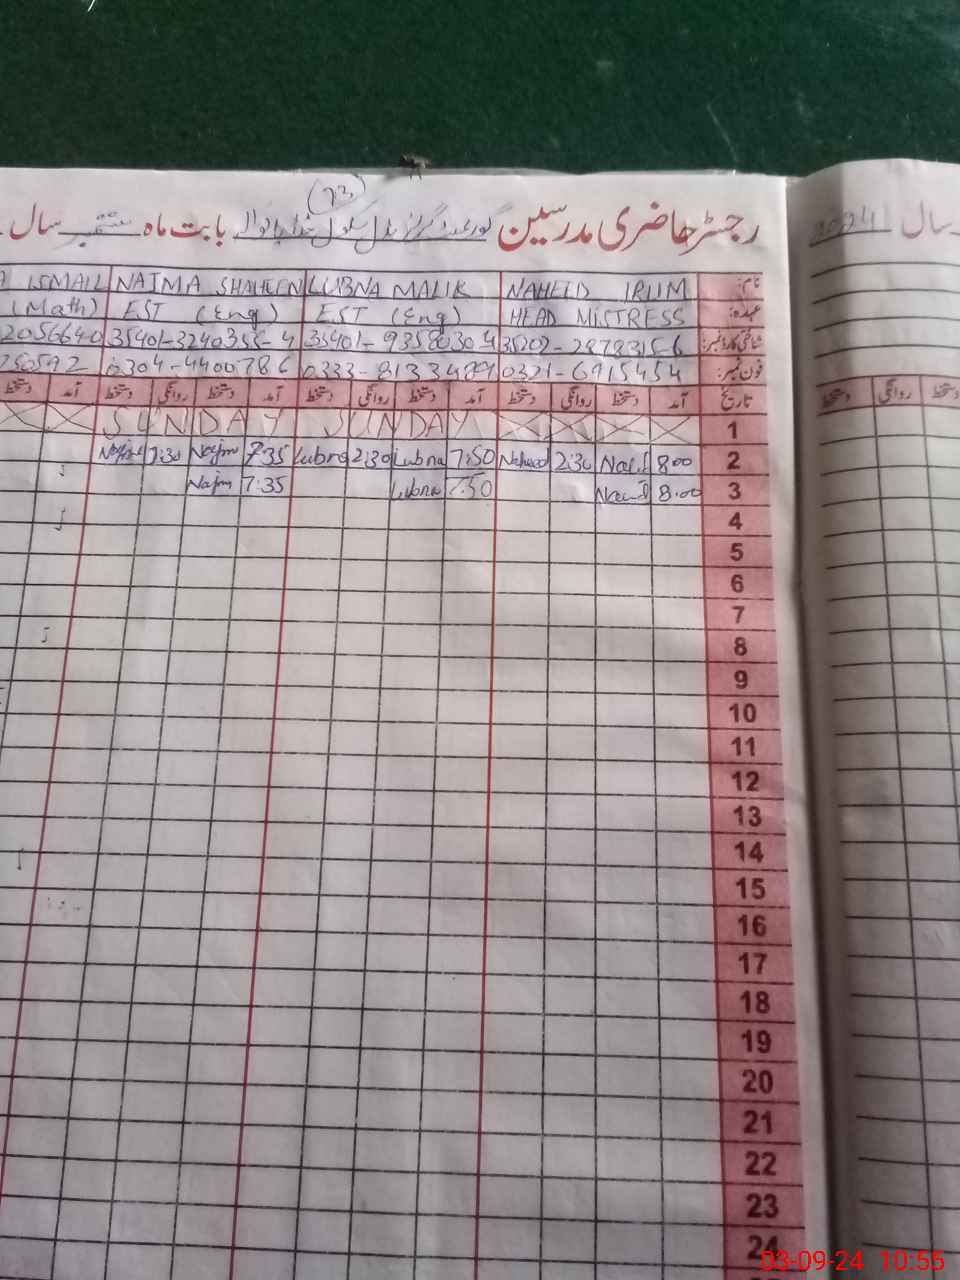 (23)
رجسٹر حاضری مدرسین گورنمنٹ گرلز مڈل سکول بابت ماہ ستمبر سال
2024 سال
نام: NAHEED IRUM LUBNA MALIK NAJMA SHAHEEN ISMAIL
عہدہ: HEAD MISTRESS EST (Eng) EST (Eng) (Math)
شناختی کارڈ نمبر: 35401-3240355-4 2056640
فون نمبر: 0321-6915454 0304-4400786
تاریخ آمد دستخط روانگی دستخط آمد دستخط روانگی دستخط آمد دستخط روانگی دستخط آمد دستخط
روانگی دستخط
1 SUNDAY SUNDAY
2 8:00 2:30 Naheed 7:50 Lubna 2:30 Lubna 7:35 Najm
3 8:00 7:50 Lubna 7:35 Najm
4
5
6
7
8
9
10
11
12
13
14
15
16
17
18
19
20
21
22
23
24
03-09-24 10:55